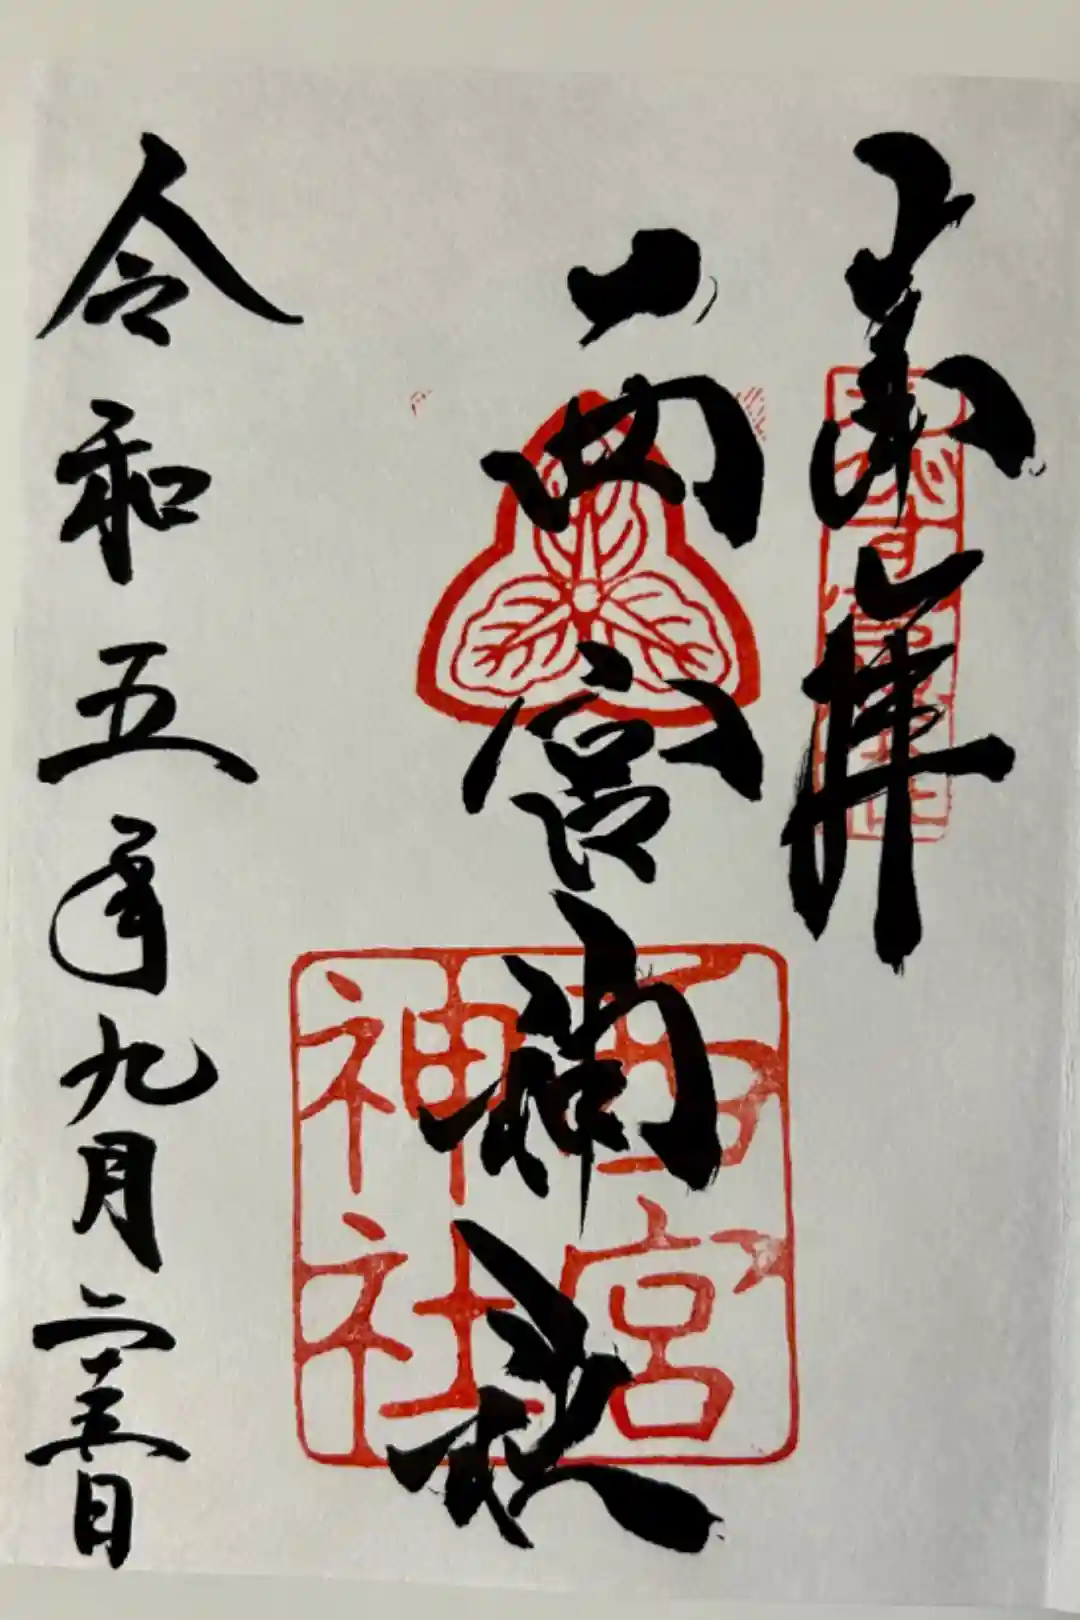 奉拝
西宮神社
西宮
神社
令和五年九月二十五日